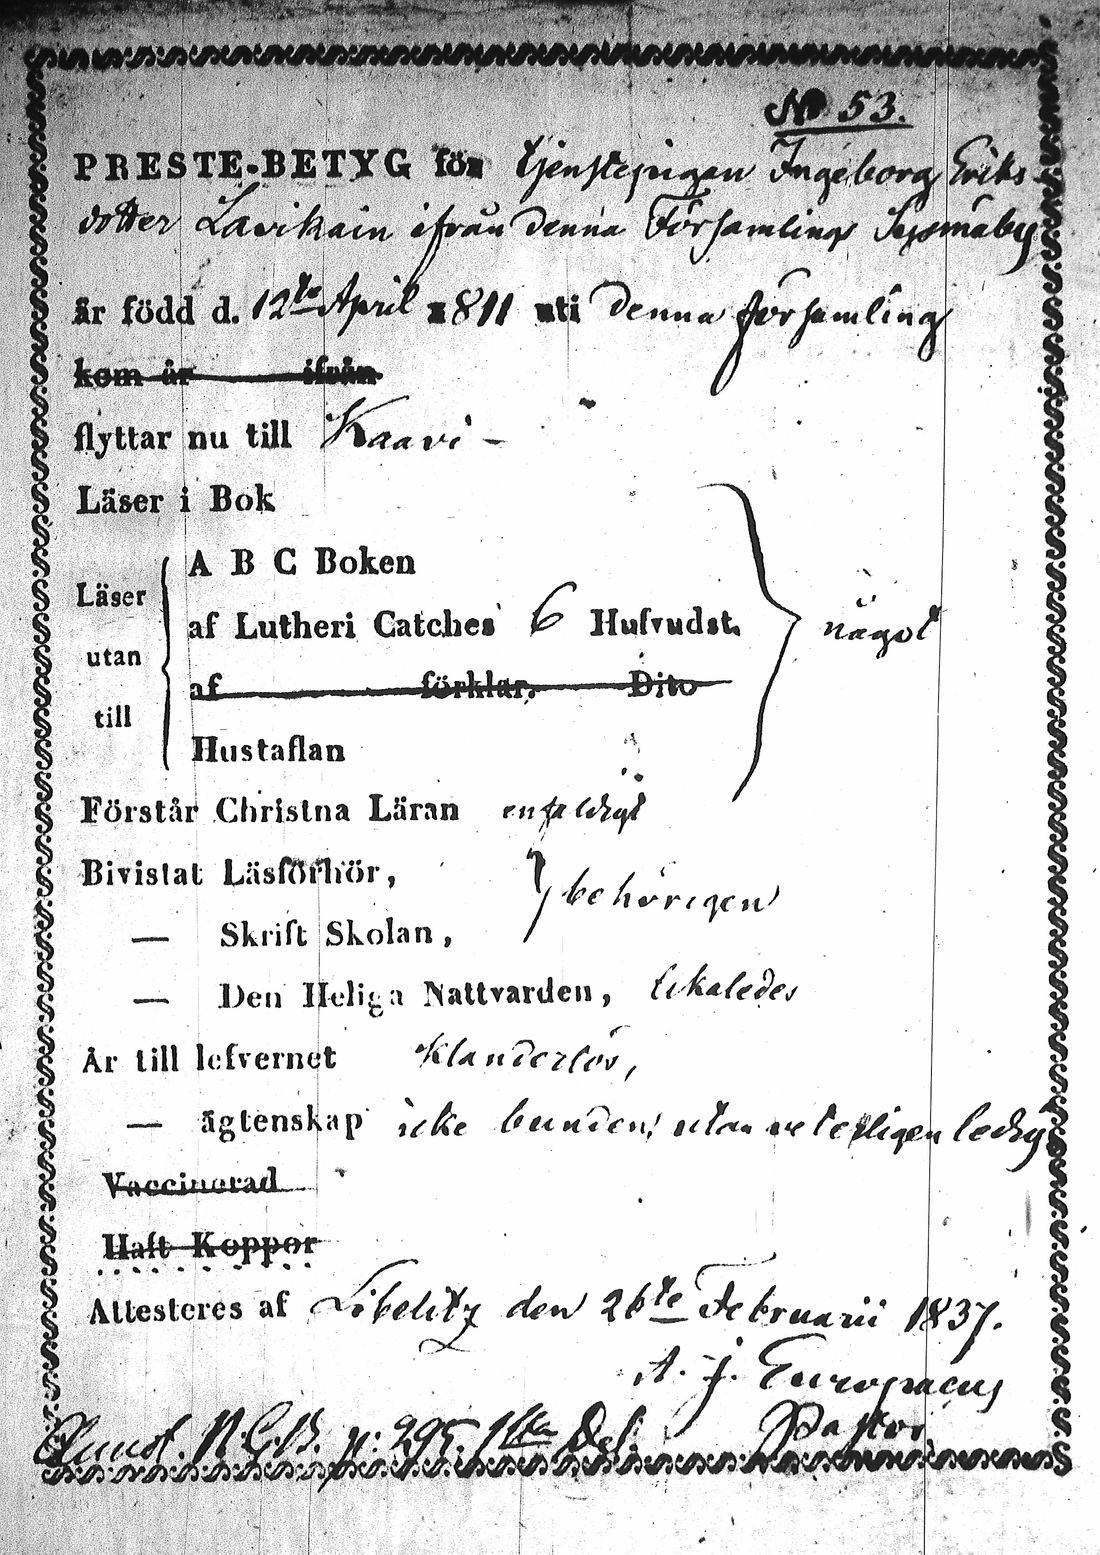 No 53.
PRESTE-BETYG för tjenstepigan Ingeborg Eriks-
dotter Lavikain ifrån denna Församlings Sysmäby
är född d. 12te April 1811 uti denna församling
kom år ifrån
flyttar nu till Kaavi -
Läser i Bok
A B C Boken
Läser
af Lutheri Catches 6 Hufvudst.
något
utan
af förklar. Dito
till
Hustaflan
Förstår Christna Läran enfaldigt
Bivistat Läsförhör,
behörigen
— Skrift Skolan,
— Den Heliga Nattvarden, likaledes
Är till lefvernet Klanderlös,
— ägtenskap icke bunden, utan veterligen ledig
Vaccinerad
Haft Koppor
Attesteres af Libelitz den 26te Februarii 1837.
A. J. Europaeus
Pastor
N.C.B. p: 295. 1sta Del.